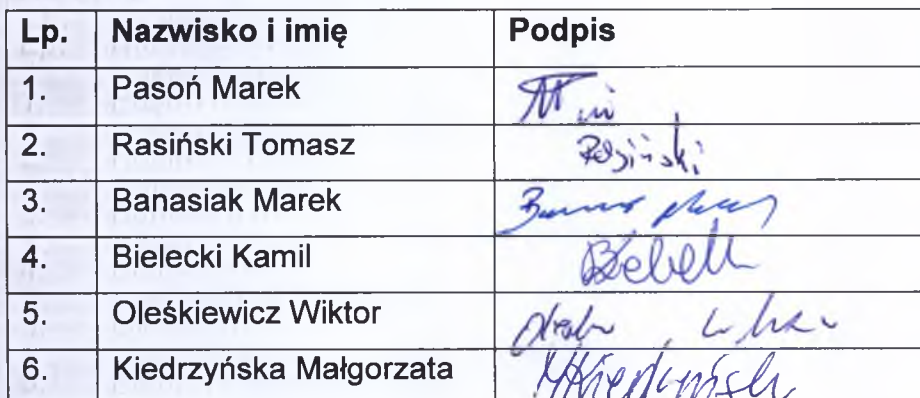 Lp. Nazwisko i imię Podpis
1. Pasoń Marek
2. Rasiński Tomasz Rasiński
3. Banasiak Marek
4. Bielecki Kamil
5. Oleśkiewicz Wiktor
6. Kiedrzyńska Małgorzata